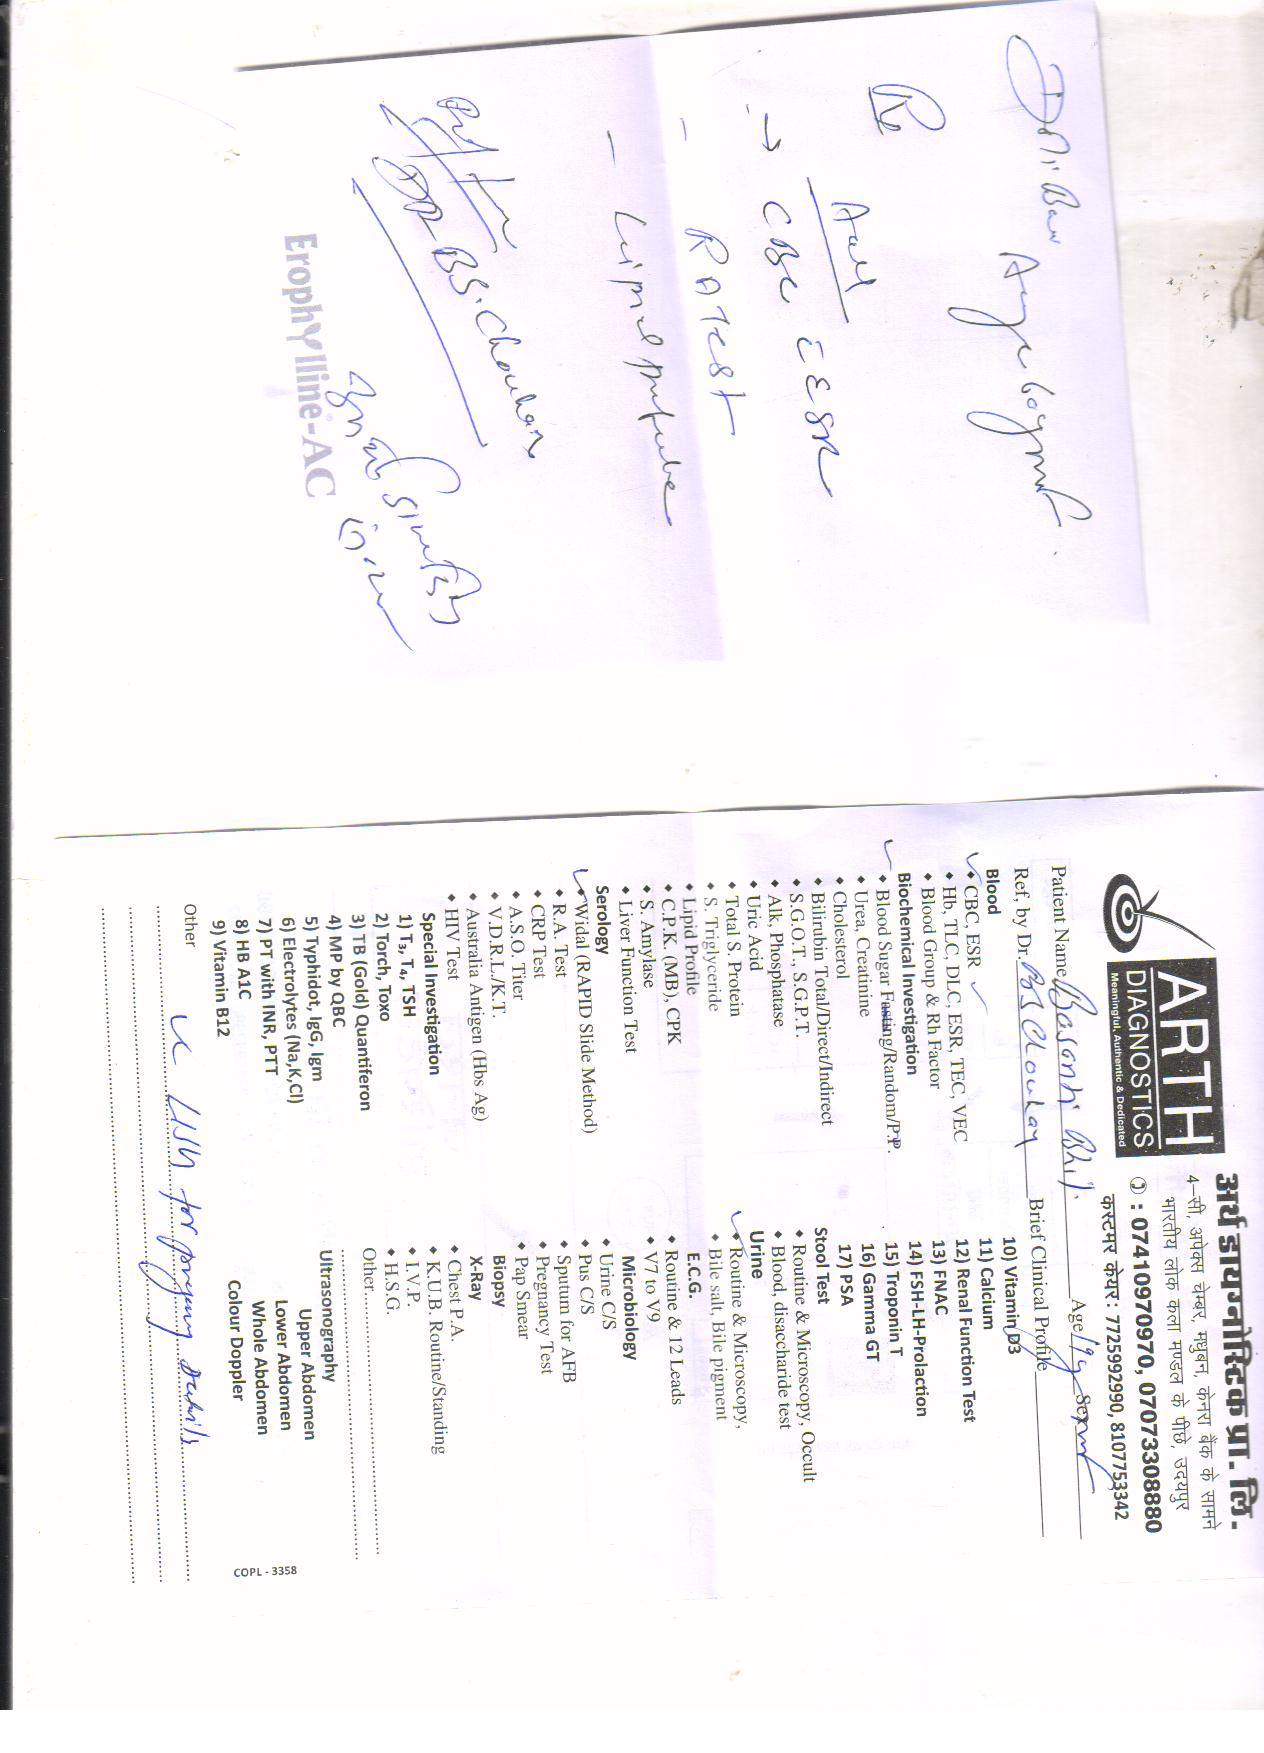 Rx
Adv
→ CBC ESR
- RA Test
- Lipid
Dr BS. Chouhan
Erophylline-AC
ARTH
DIAGNOSTICS
Meaningful, Authentic & Dedicated
अर्थ डायग्नोस्टिक प्रा. लि.
4–सी, अपेक्स चेम्बर, मधुबन, केनरा बैंक के सामने
भारतीय लोक कला मण्डल के पीछे, उदयपुर
✆ : 07410970970, 07073308880
कस्टमर केयर : 7725992990, 8107753342
Patient Name Basanti Bhil Age 19y Sex
Ref, by Dr. BS Chouhan Brief Clinical Profile
Blood
• CBC, ESR
• Hb, TLC, DLC, ESR, TEC, VEC
• Blood Group & Rh Factor
Biochemical Investigation
• Blood Sugar Fasting/Random/P.P.
• Urea, Creatinine
• Cholesterol
• Bilirubin Total/Direct/Indirect
• S.G.O.T., S.G.P.T.
• Alk, Phosphatase
• Uric Acid
• Total S. Protein
• S. Triglyceride
• Lipid Profile
• C.P.K. (MB), CPK
• S. Amylase
• Liver Function Test
Serology
• Widal (RAPID Slide Method)
• R.A. Test
• CRP Test
• A.S.O. Titer
• V.D.R.L./K.T.
• Australia Antigen (Hbs Ag)
• HIV Test
Special Investigation
1) T₃, T₄, TSH
2) Torch, Toxo
3) TB (Gold) Quantiferon
4) MP by QBC
5) Typhidot, IgG, Igm
6) Electrolytes (Na,K,Cl)
7) PT with INR, PTT
8) HB A1C
9) Vitamin B12
10) Vitamin D3
11) Calcium
12) Renal Function Test
13) FNAC
14) FSH-LH-Prolaction
15) Troponin T
16) Gamma GT
17) PSA
Stool Test
• Routine & Microscopy, Occult
• Blood, disaccharide test
Urine
• Routine & Microscopy,
• Bile salt, Bile pigment
E.C.G.
• Routine & 12 Leads
• V7 to V9
Microbiology
• Urine C/S
• Pus C/S
• Sputum for AFB
• Pregnancy Test
• Pap Smear
Biopsy
X-Ray
• Chest P.A.
• K.U.B. Routine/Standing
• I.V.P.
• H.S.G.
Other
Ultrasonography
Upper Abdomen
Lower Abdomen
Whole Abdomen
Colour Doppler
Other
for
COPL - 3358